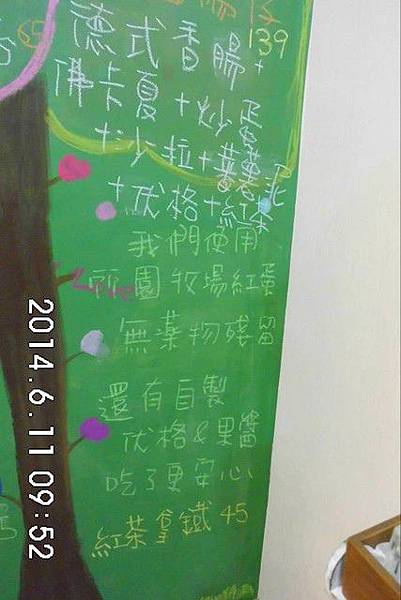 139
德式香腸+
佛卡夏+炒蛋
+沙拉+薯泥
+优格+紅茶
我們使用
園牧場紅蛋
Love
無藥物殘留
還有自製
优格&果醬
吃了更安心
紅茶拿鐵 45
65
2014.6.11 09:52